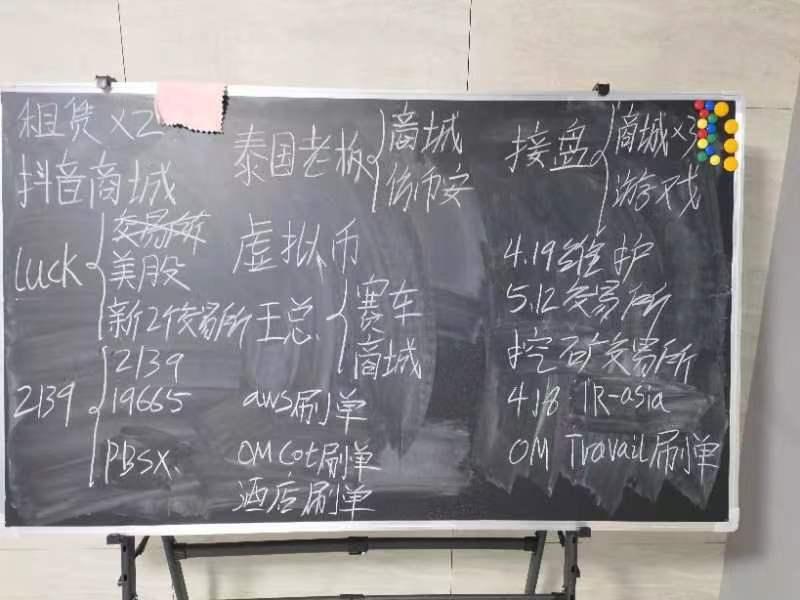 租赁 x2
抖音商城
luck
交易所
美股
新2个交易所
2139
2139
19665
PBSX.
泰国老板
商城
仿币安
虚拟币
王总.
赛车
商城
aws刷单
OMCot刷单
酒店刷单
接盘
商城x3
游戏
4.19维护
5.12交易所
挖矿交易所
4.18 IR-asia
OM Travail刷单